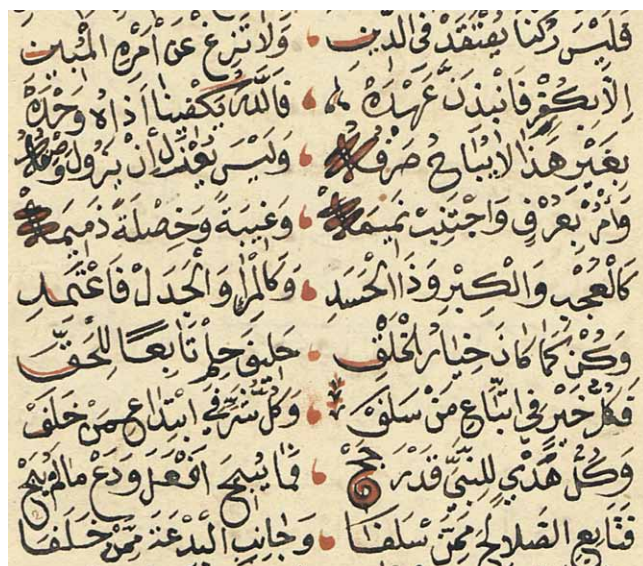 فَلَيْسَ رُكْنًا يُعْتَقَدْ فِي الدِّينِ وَلَا تَزِغْ عَنْ أَمْرِهِ الْمُبِينِ
إِلَّا بِكُفْرٍ فَانْبِذَنَّ عَهْدَهْ فَاللَّهُ يَكْفِينَا أَذَاهُ وَحْدَهْ
بِغَيْرِ هَذَا لَا يُبَاحُ صَرْفُهْ وَلَيْسَ يُعْزَلْ أَنْ يَزُولَ وَصْفُهْ
وَأْمُرْ بِعُرْفٍ وَاجْتَنِبْ نَمِيمَهْ وَغِيبَةً وَخَصْلَةً ذَمِيمَهْ
كَالْعُجْبِ وَالْكِبْرِ وَدَاءِ الْحَسَدِ وَكَالْمِرَاءِ وَالْجَدَلْ فَاعْتَمِدِ
وَكُنْ كَمَا كَانَ خِيَارُ الْخَلْقِ حَلِيفَ حِلْمٍ تَابِعًا لِلْحَقِّ
فَكُلُّ خَيْرٍ فِي اتِّبَاعِ مَنْ سَلَفْ وَكُلُّ شَرٍّ فِي ابْتِدَاعِ مَنْ خَلَفْ
وَكُلُّ هَدْيٍ لِلنَّبِيِّ قَدْ رَجَحْ فَمَا أُبِيحَ افْعَلْ وَدَعْ مَا لَمْ يُبَحْ
فَتَابِعِ الصَّالِحَ مِمَّنْ سَلَفَا وَجَانِبِ الْبِدْعَةَ مِمَّنْ خَلَفَا